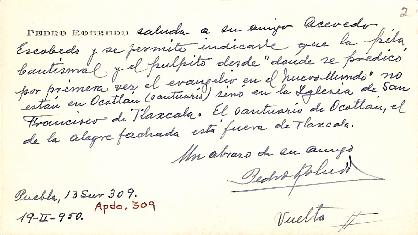 2
PEDRO ROBREDO saluda a su amigo Acevedo
Escobedo y se permite indicarle que la pila
bautismal y el pulpito desde "donde se predicó
por primera vez el evangelio en el Nuevo Mundo" no
están en Ocotlán (santuario) sino en la Iglesia de San
Francisco de Tlaxcala. El santuario de Ocotlán, el
de la alegre fachada está fuera de Tlaxcala.
Un abrazo de su amigo
Pedro Robredo
Puebla, 13 Sur 309.
Apdo. 309
19-II-950.
Vuelta